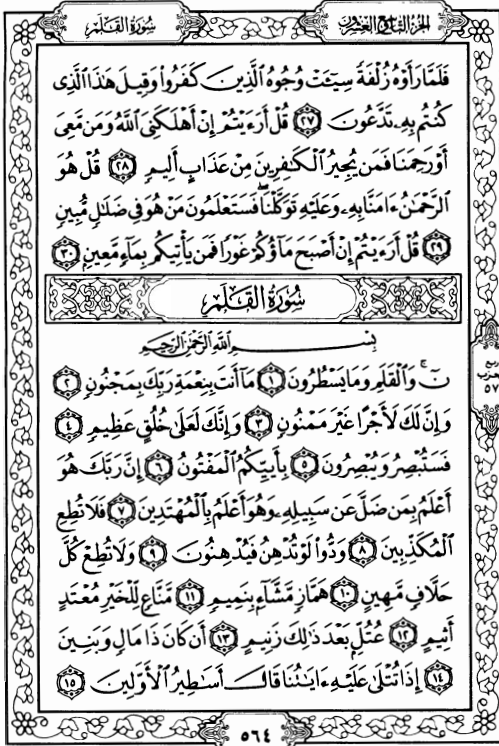 الجُزْءُ التَّاسِعُ وَالْعِشْرُونَ
سُورَةُ القَلَم
فَلَمَّا رَأَوْهُ زُلْفَةً سِيٓـَٔتْ وُجُوهُ ٱلَّذِينَ كَفَرُوا۟ وَقِيلَ هَٰذَا ٱلَّذِى
كُنتُم بِهِۦ تَدَّعُونَ ٢٧ قُلْ أَرَءَيْتُمْ إِنْ أَهْلَكَنِىَ ٱللَّهُ وَمَن مَّعِىَ
أَوْ رَحِمَنَا فَمَن يُجِيرُ ٱلْكَٰفِرِينَ مِنْ عَذَابٍ أَلِيمٍ ٢٨ قُلْ هُوَ
ٱلرَّحْمَٰنُ ءَامَنَّا بِهِۦ وَعَلَيْهِ تَوَكَّلْنَا ۖ فَسَتَعْلَمُونَ مَنْ هُوَ فِى ضَلَٰلٍ مُّبِينٍ
٢٩ قُلْ أَرَءَيْتُمْ إِنْ أَصْبَحَ مَآؤُكُمْ غَوْرًا فَمَن يَأْتِيكُم بِمَآءٍ مَّعِينٍۭ ٣٠
سُورَةُ القَلَم
بِسْمِ ٱللَّهِ ٱلرَّحْمَٰنِ ٱلرَّحِيمِ
نٓ ۚ وَٱلْقَلَمِ وَمَا يَسْطُرُونَ ١ مَآ أَنتَ بِنِعْمَةِ رَبِّكَ بِمَجْنُونٍ ٢
ربع
الحزب
٥٧
وَإِنَّ لَكَ لَأَجْرًا غَيْرَ مَمْنُونٍ ٣ وَإِنَّكَ لَعَلَىٰ خُلُقٍ عَظِيمٍ ٤
فَسَتُبْصِرُ وَيُبْصِرُونَ ٥ بِأَييِّكُمُ ٱلْمَفْتُونُ ٦ إِنَّ رَبَّكَ هُوَ
أَعْلَمُ بِمَن ضَلَّ عَن سَبِيلِهِۦ وَهُوَ أَعْلَمُ بِٱلْمُهْتَدِينَ ٧ فَلَا تُطِعِ
ٱلْمُكَذِّبِينَ ٨ وَدُّوا۟ لَوْ تُدْهِنُ فَيُدْهِنُونَ ٩ وَلَا تُطِعْ كُلَّ
حَلَّافٍ مَّهِينٍ ١٠ هَمَّازٍ مَّشَّآءٍۭ بِنَمِيمٍ ١١ مَّنَّاعٍ لِّلْخَيْرِ مُعْتَدٍ
أَثِيمٍ ١٢ عُتُلٍّۭ بَعْدَ ذَٰلِكَ زَنِيمٍ ١٣ أَن كَانَ ذَا مَالٍ وَبَنِينَ
١٤ إِذَا تُتْلَىٰ عَلَيْهِ ءَايَٰتُنَا قَالَ أَسَٰطِيرُ ٱلْأَوَّلِينَ ١٥
٥٦٤